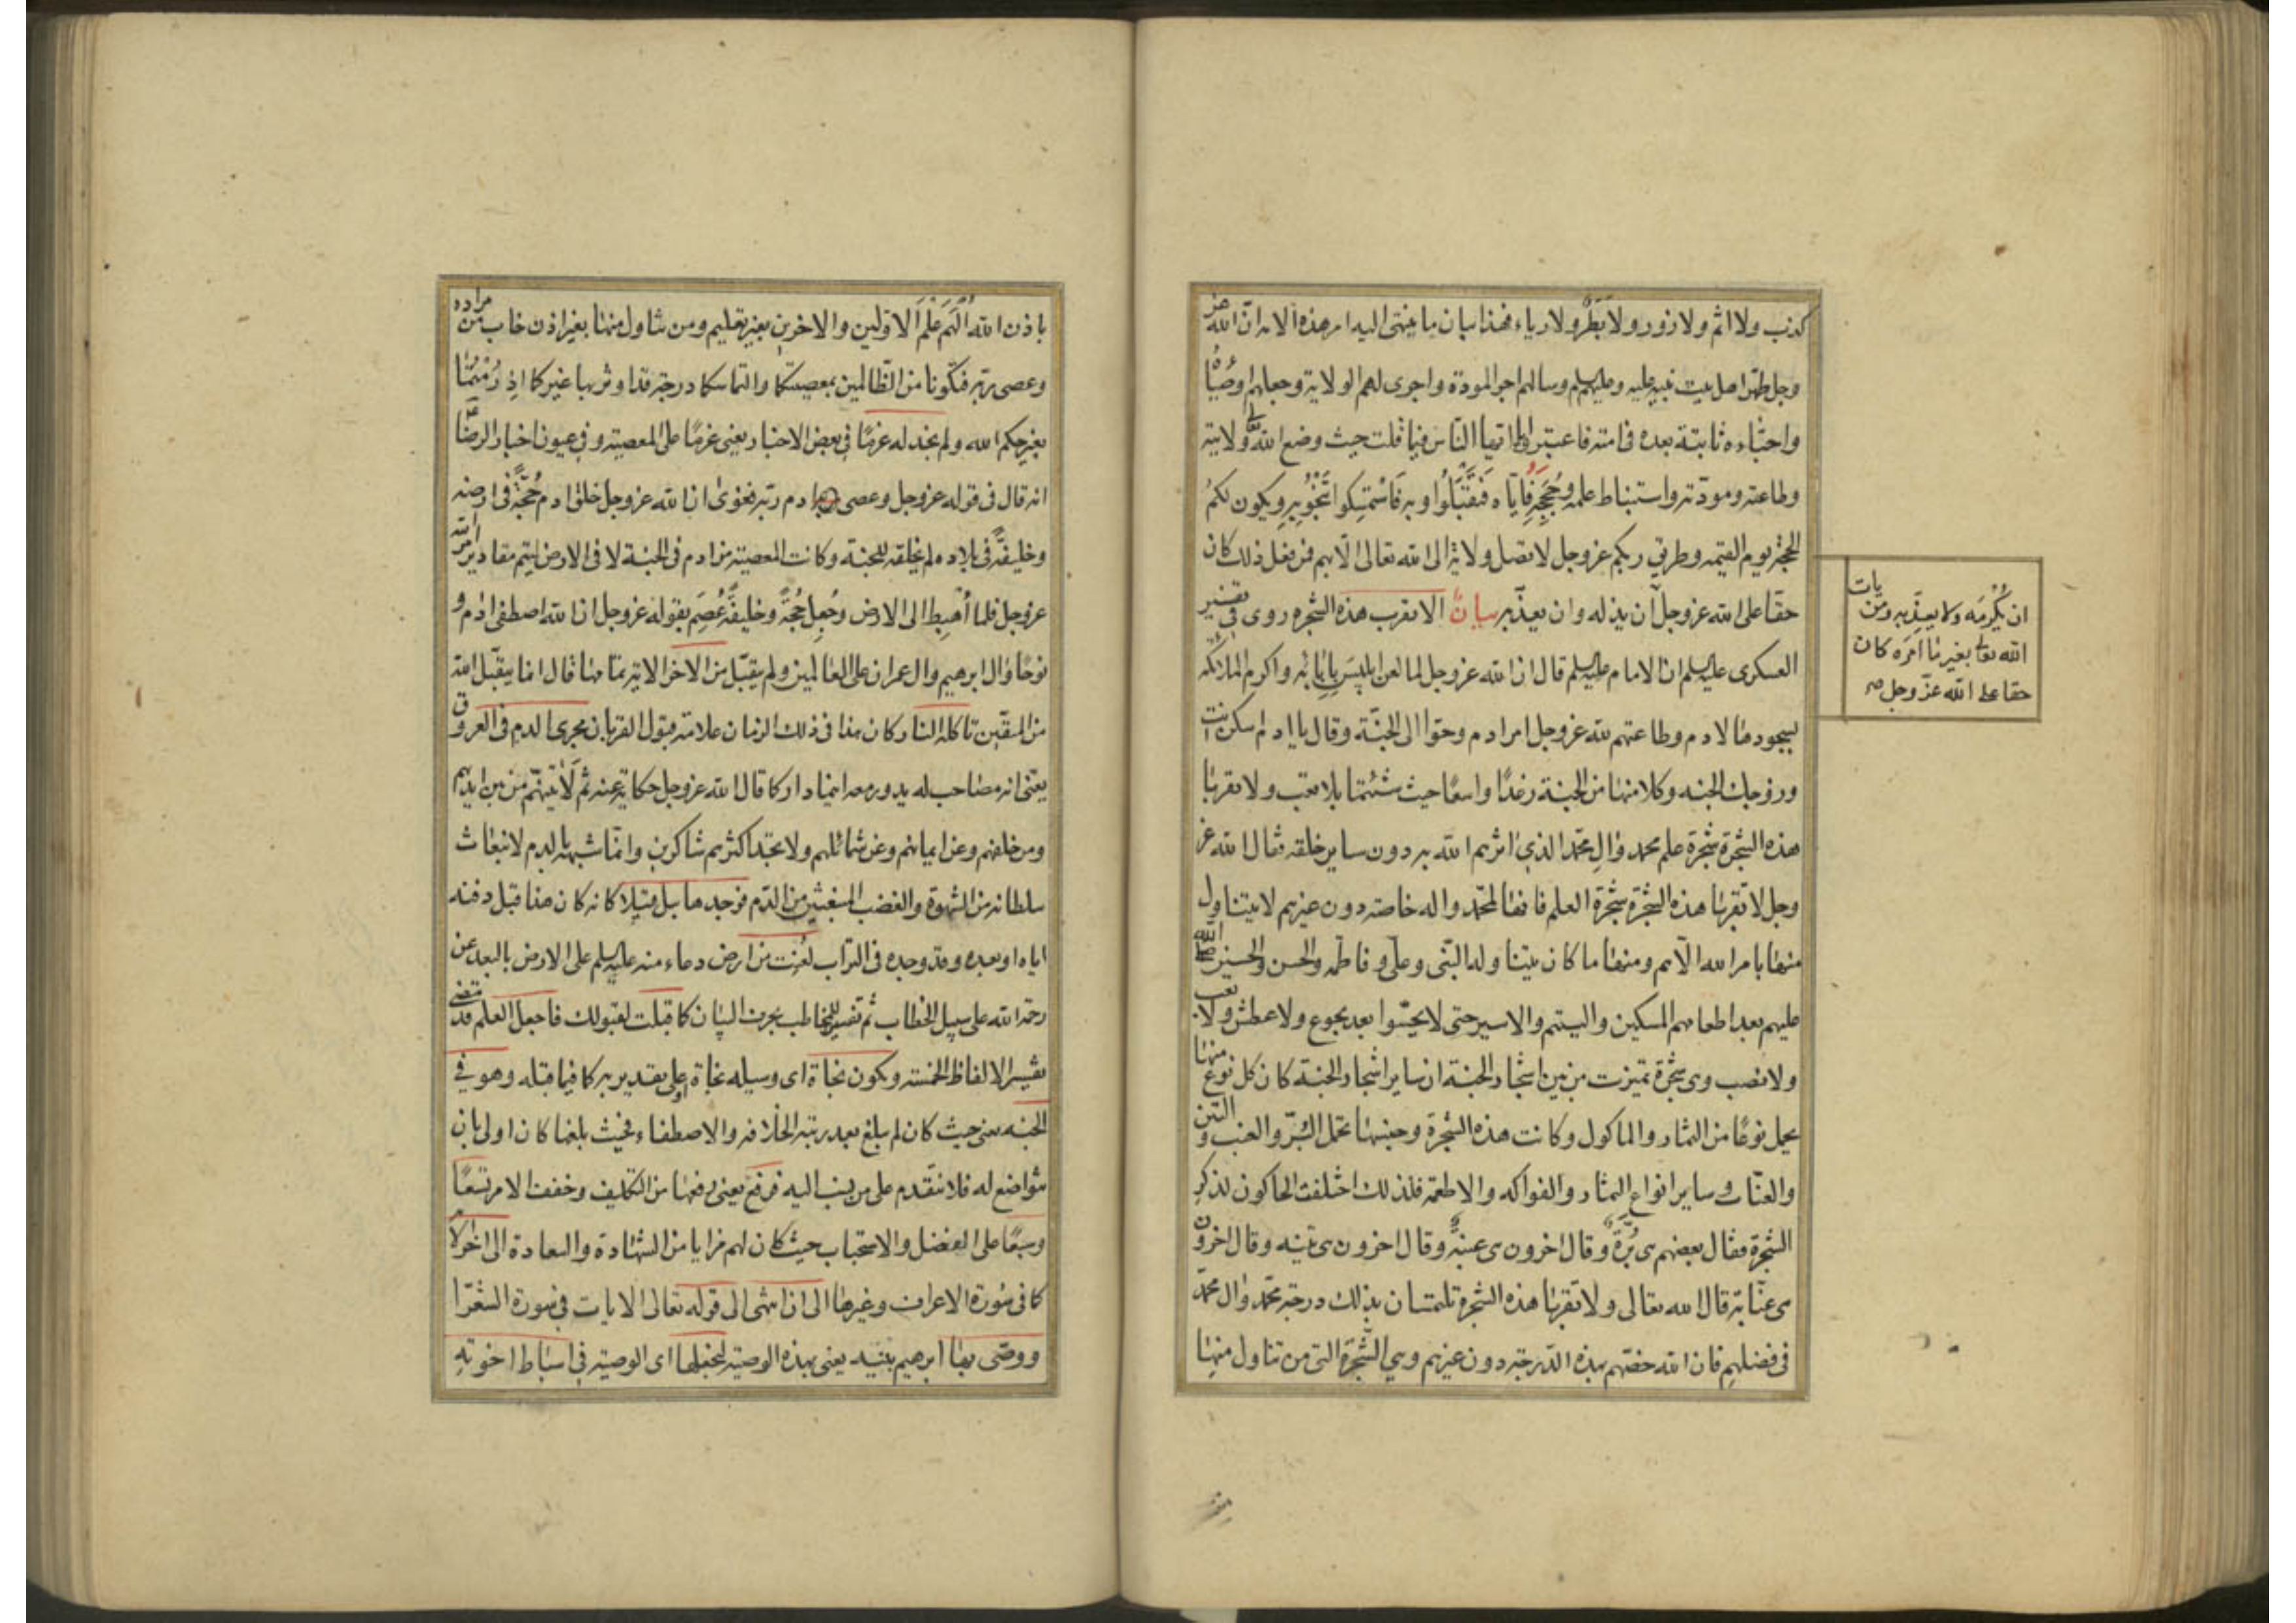 كذب ولا اثم ولا زور ولا بطر ولا رياء فهذا بيان ما ينتهى اليه امر هذه الامة ان الله عز
وجل طهر اهل بيت نبيه عليه وعليهم وسألهم اجر المودة واجرى لهم الولاية وجعلهم اوصياء
واحباءه ثابتة بعده فى امته فاعتبروا ايها الناس فيما قلت حيث وضع الله ولايته
وطاعته ومودته واستنباط علمه وحججه فاياه فتقبلوا وبه فاستمسكوا تنجوا به ويكون لكم
الحجة يوم القيمه وطريق ربكم عز وجل لا تصل ولاية الى الله تعالى الا بهم فمن فعل ذلك كان
حقا على الله عز وجل ان يذله وان يعذبه بيان الا تقرب هذه الشجره روى فى تفسير
العسكرى عليه السلم ان الامام عليه السلم قال ان الله عز وجل لما لعن ابليس بابائه واكرم الملائكه
بسجودها لادم وطاعتهم لله عز وجل امر ادم وحوا الى الجنة وقال يا ادم اسكن انت
وزوجك الجنه وكلا منها من الجنة رغدا واسعا حيث شئتما بلا تعب ولا تقربا
هذه الشجرة شجرة علم محمد وال محمد الذى اثرهم الله به دون ساير خلقه فقال الله عز
وجل لا تقربا هذه الشجرة شجرة العلم فانها لمحمد واله خاصة دون غيرهم لا يتناول
منها بامر الله الا هم ومنها ما كان يتناوله النبى وعلى وفاطمه والحسن والحسين صلى الله
عليهم بعد اطعامهم المسكين واليتيم والاسير حتى لا يحسوا بعد بجوع ولا عطش ولا تعب
ولا نصب وهى شجرة تميزت من بين اشجار الجنة ان ساير اشجار الجنة كان كل نوع منها
يحمل نوعا من الثمار والماكول وكانت هذه الشجرة وجنسها تحمل البر والعنب والتين
والعناب وساير انواع الثمار والفواكه والاطعمة فلذلك اختلفت الحاكون لذكر
الشجرة فقال بعضهم هى برة وقال اخرون هى عنبة وقال اخرون هى تينه وقال اخرون
هى عنابة قال الله تعالى ولا تقربا هذه الشجرة تلتمسان بذلك درجة محمد وال محمد
فى فضلهم فان الله خصهم بهذه الدرجة دون غيرهم وهى الشجرة التى من تناول منها
يات
ان يكرمه ولا يعذبه ومن
الله تعالى بغير ما امره كان
حقا على الله عز وجل صح
باذن الله الهم علم الاولين والاخرين بغير تعليم ومن تناول منها بغير اذن خاب من مراده
وعصى ربه فتكونا من الظالمين بمعصيتكما والتماسكما درجة قد اوثر بها غيركما اذ رمتما
بغير حكم الله ولم نجد له عزما فى بعض الاخبار يعنى عزما على المعصيته وفى عيون اخبار الرضا
انه قال فى قوله عز وجل وعصى ادم ربه فغوى ان الله عز وجل خلق ادم حجة فى ارضه
وخليفة فى بلاده لم يخلقه للجنة وكانت المعصيته من ادم فى الجنة لا فى الارض ليتم مقادير امر الله
عز وجل فلما اهبط الى الارض وجعل حجة وخليفة عصم بقوله عز وجل ان الله اصطفى ادم و
نوحا وال ابرهيم وال عمران على العالمين ولم يتقبل من الاخر الاية تمامها قال انما يتقبل الله
من المتقين تاكله النار كان هذا فى ذلك الزمان علامة قبول القربان مجرى الدم فى العروق
يعنى انه مصاحب له يدور معه اينما دار كما قال الله عز وجل حكاية عنه ثم لاتينهم من بين ايديهم
ومن خلفهم وعن ايمانهم وعن شمائلهم ولا تجد اكثرهم شاكرين وانما شبهه بالدم لانبعاث
سلطانه من الشهوة والغضب المنبعثين من الدم فوجد هابيل قتيلا كانه كان هذا قبل دفنه
اياه او بعده وقد وجده فى التراب لعنت من ارض دعاء منه عليه السلم على الارض بالبعد عن
رحمة الله على سبيل الخطاب ثم تفسير للمخاطب بحرف البيان كما قبلت لقبولك فاجعل العلم قد مضى
تفسير الالفاظ الخمسته ويكون نجاة اى وسيله نجاة او على تقدير به كما فيما قبله وهو فى
الجنه يعنى حيث كان لم يبلغ بعد رتبة الخلافه والاصطفاء فحيث بلغها كان اولى بان
يتواضع له فلا نتقدم على من ينسب اليه فرفع يعنى رفعها من التكليف وخفف الامر تسعا
وسبعا على الفضل والاستحباب حيث كان لهم مزايا من الشهادة والسعادة الى اخر لا
كما فى سورة الاعراف وغيرها الى ان انتهى الى قوله تعالى الايات فى سورة الشعرا
ووصى بها ابرهيم بنيه يعنى بهذه الوصية لتجعلها اى الوصية فى اسباط اخوته